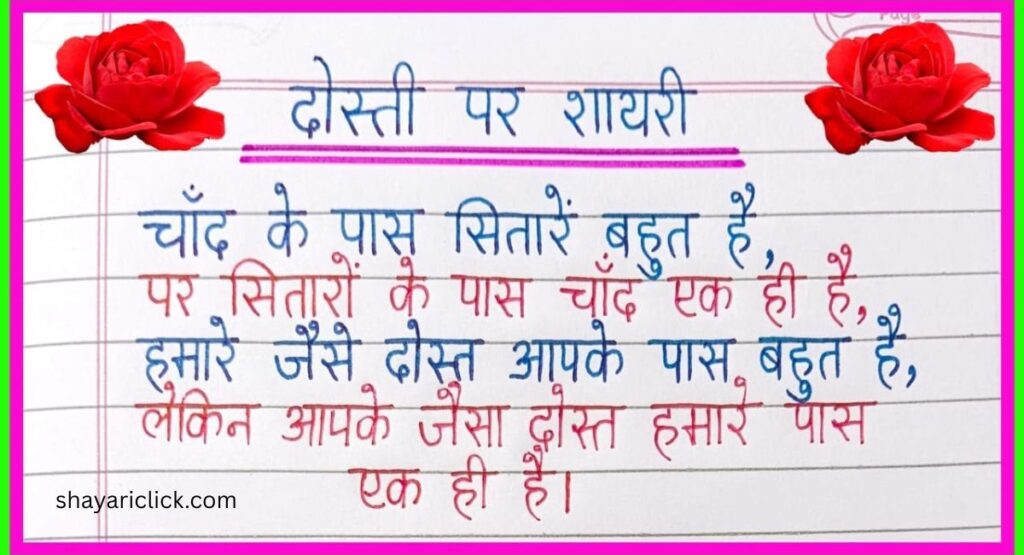 Page
दोस्ती पर शायरी
चाँद के पास सितारें बहुत है,
पर सितारों के पास चाँद एक ही है,
हमारे जैसे दोस्त आपके पास बहुत है,
लेकिन आपके जैसा दोस्त हमारे पास
एक ही है।
shayariclick.com